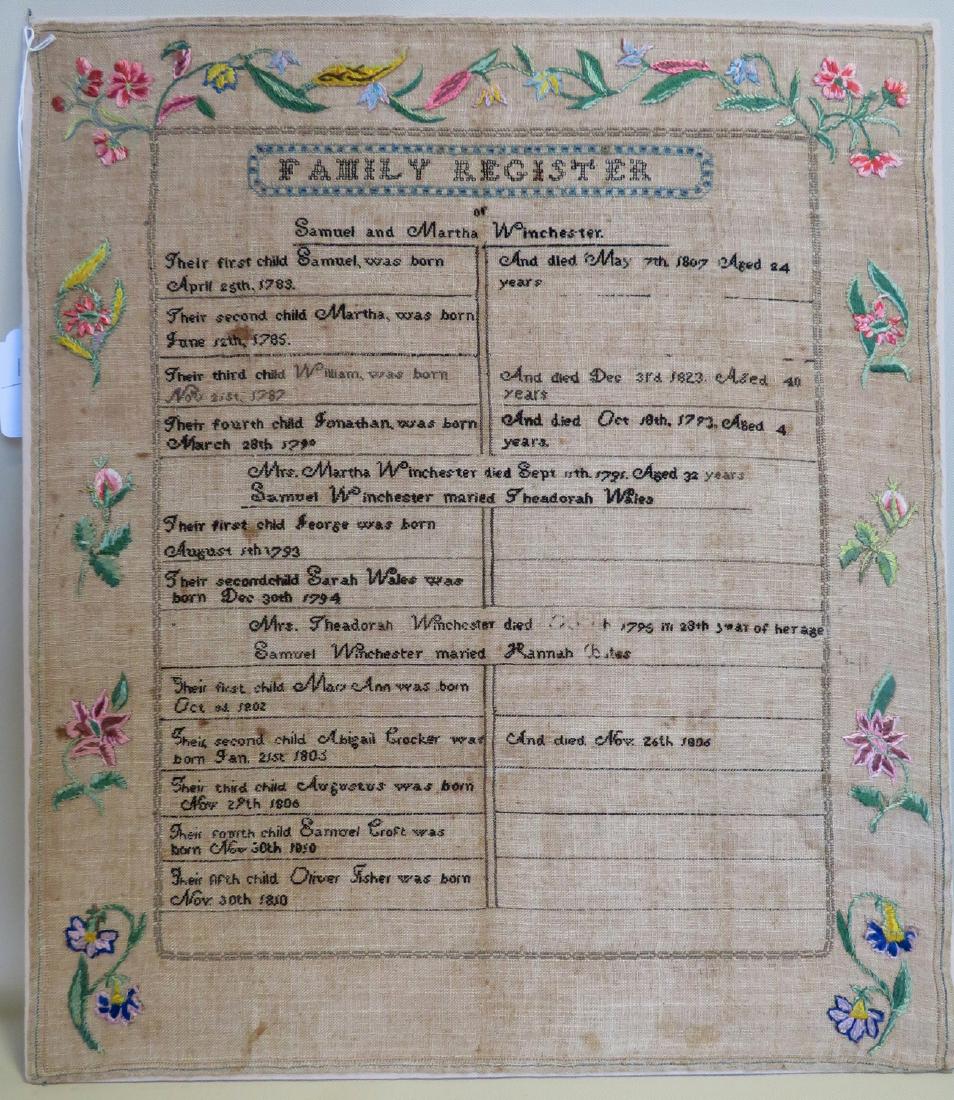 FAMILY REGISTER
of
Samuel and Martha Winchester.
Their first child Samuel, was born
April 25th, 1783.
And died May 7th, 1807 Aged 24
years
Their second child Martha, was born
June 12th, 1785.
Their third child William, was born
Nov 21st, 1787
And died Dec 3rd 1823. Aged 40
years
Their fourth child Jonathan, was born
March 28th 1790
And died Oct 18th, 1793, Aged 4
years.
Mrs. Martha Winchester died Sept 11th, 1791. Aged 32 years
Samuel Winchester maried Theadorah Wales
Their first chid George was born
August 5th 1793
Their secondchild Sarah Wales was
born Dec 30th 1794
Mrs. Theadorah Winchester died 1795 in 28th year of her age
Samuel Winchester maried Hannah Bates
Their first child Mary Ann was born
Oct 1802
Their second child Abigail Crocker was
born Jan. 21st 1805
And died Nov. 26th 1806
Their third child Augustus was born
Nov 29th 1806
Their fourth child Samuel Croft was
born Nov 30th 1810
Their fifth child Oliver Fisher was born
Nov. 30th 1810